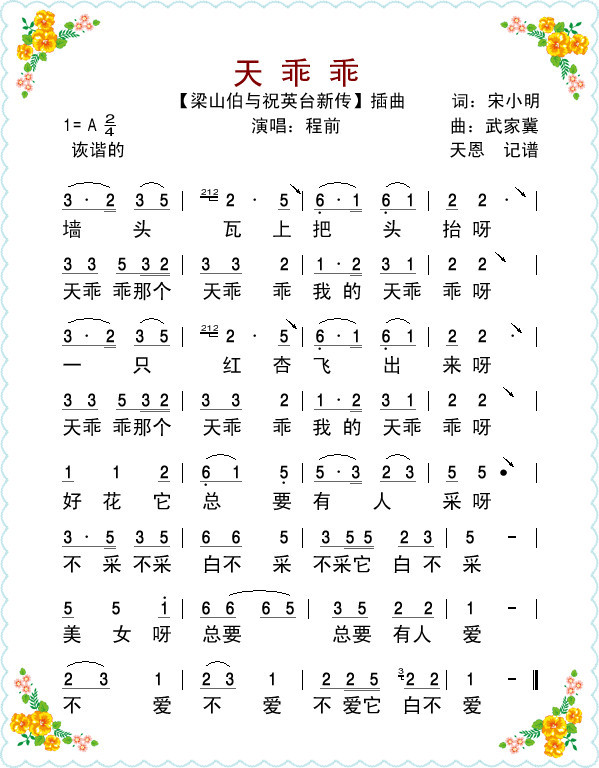 天乖乖
【梁山伯与祝英台新传】插曲 词：宋小明
1=A 2/4 演唱：程前 曲：武家冀
诙谐的 天恩 记谱
3·2 35 | 212 2·5 | 6·1 61 | 2 2· |
墙头瓦上把头抬呀
33 532 | 33 2 | 1·2 31 | 2 2 |
天乖乖那个天乖乖我的天乖乖呀
3·2 35 | 212 2·5 | 6·1 61 | 2 2· |
一只红杏飞出来呀
33 532 | 33 2 | 1·2 31 | 2 2 |
天乖乖那个天乖乖我的天乖乖呀
1 1 2 | 61 5 | 5·3 23 | 5 5· |
好花它总要有人采呀
3·5 35 | 66 5 | 355 23 | 5 - |
不采不采白不采不采它白不采
5 5 1 | 66 65 | 335 22 | 2 - |
美女呀总要总要有人爱
23 1 | 23 1 | 225 3 22 | 1 - ‖
不爱不爱不爱它白不爱